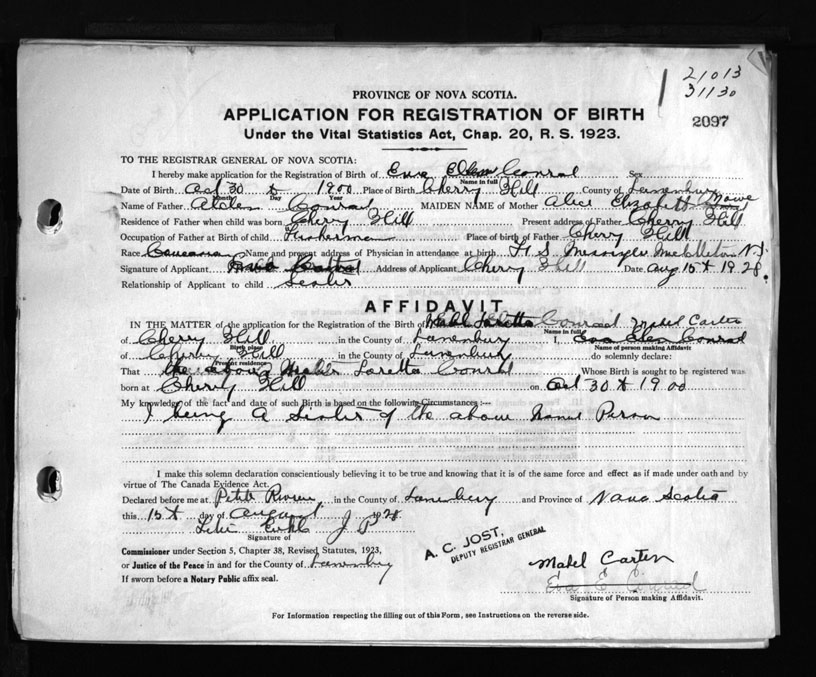 21013
31130
2097
PROVINCE OF NOVA SCOTIA.
APPLICATION FOR REGISTRATION OF BIRTH
Under the Vital Statistics Act, Chap. 20, R. S. 1923.
TO THE REGISTRAR GENERAL OF NOVA SCOTIA:
I hereby make application for the Registration of Birth of Ellen Conrad Sex
Name in full
Date of Birth Oct 30th 1900 Place of Birth Cherry Hill County of Lunenburg
Month Day Year
Name of Father Conrad MAIDEN NAME of Mother Alice Elizabeth
Residence of Father when child was born Cherry Hill Present address of Father Cherry Hill
Occupation of Father at Birth of child Fisherman Place of birth of Father Cherry Hill
Race Name and present address of Physician in attendance at birth H S
Signature of Applicant Address of Applicant Cherry Hill Date Aug 15th 1928.
Relationship of Applicant to child Sister
AFFIDAVIT
IN THE MATTER of the application for the Registration of the Birth of Loretta Conrad Mabel Carter
Name in full
of Cherry Hill in the County of Lunenburg I, Conrad
Birth place Name of person making Affidavit
of Cherry Hill in the County of Lunenburg do solemnly declare:
Present residence
That the above Loretta Conrad Whose Birth is sought to be registered was
born at Cherry Hill on Oct 30th 1900
My knowledge of the fact and date of such Birth is based on the following Circumstances:—
I being A Sister of the above Person
I make this solemn declaration conscientiously believing it to be true and knowing that it is of the same force and effect as if made under oath and by
virtue of The Canada Evidence Act.
Declared before me at Petite Riviere in the County of Lunenburg and Province of Nova Scotia
this 15th day of August 1928
J P
Signature of
Commissioner under Section 5, Chapter 38, Revised Statutes, 1923,
or Justice of the Peace in and for the County of Lunenburg
If sworn before a Notary Public affix seal.
A. C. JOST,
DEPUTY REGISTRAR GENERAL
Mabel Carter
Eva E Conrad
Signature of Person making Affidavit.
For Information respecting the filling out of this Form, see Instructions on the reverse side.